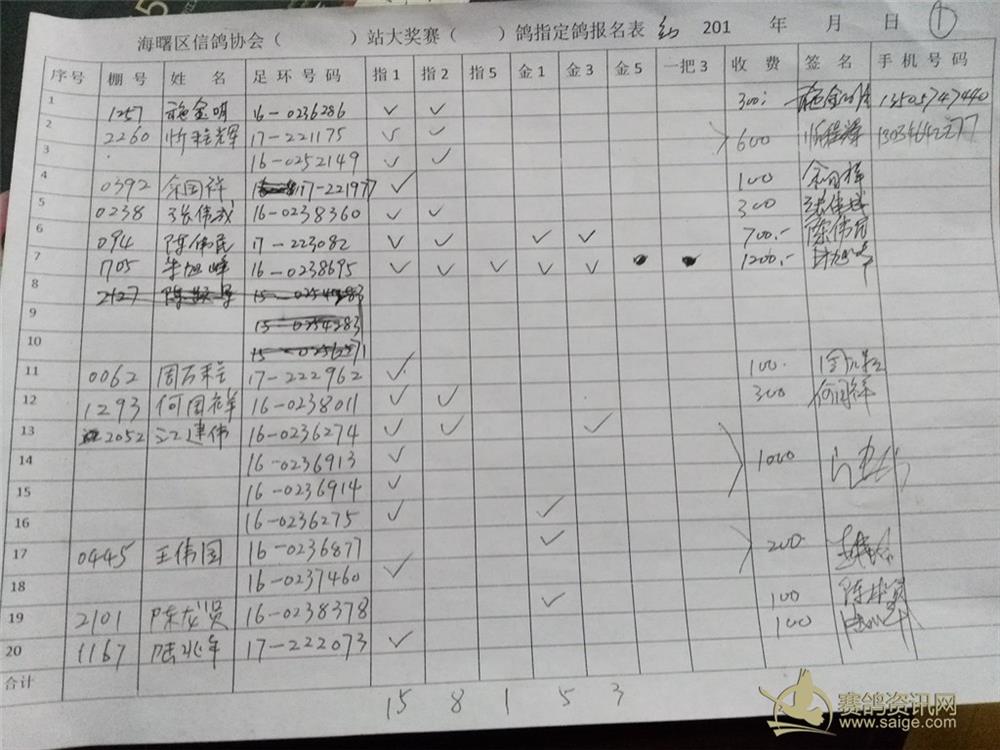 海曙区信鸽协会（ ）站大奖赛（ ）鸽指定鸽报名表 201 年 月 日 ①
序号 棚号 姓名 足环号码 指1 指2 指5 金1 金3 金5 一把3 收费 签名 手机号码
1 1257 施金明 16-0236286 ✓ ✓ 300 13505747440
2 2260 忻程辉 17-221175 ✓ ✓ 600 忻程辉
3 16-0252149 ✓ ✓
4 0392 余国祥 17-221977 ✓ 100 余国祥
5 0238 张伟成 16-0238360 ✓ ✓ 300 张伟成
6 094 陈伟民 17-223082 ✓ ✓ ✓ ✓ 700.- 陈伟民
7 705 朱旭峰 16-0238695 ✓ ✓ ✓ ✓ ✓ ● ● 1200.-
8 2127
9 15-0254283
10
11 0062 17-222962 ✓ 100
12 1293 何国祥 16-0238011 ✓ ✓ 300 何国祥
13 2052 江建伟 16-0236274 ✓ ✓ ✓
14 16-0236913 ✓ 1000
15 16-0236914 ✓
16 16-0236275 ✓ ✓
17 0445 王伟国 16-0236877 ✓ 200
18 16-0237460 ✓
19 2101 陈龙贤 16-0238378 ✓ 100
20 1167 陆兆年 17-222073 ✓ 100
合计 15 8 1 5 3
赛鸽资讯网
www.saige.com